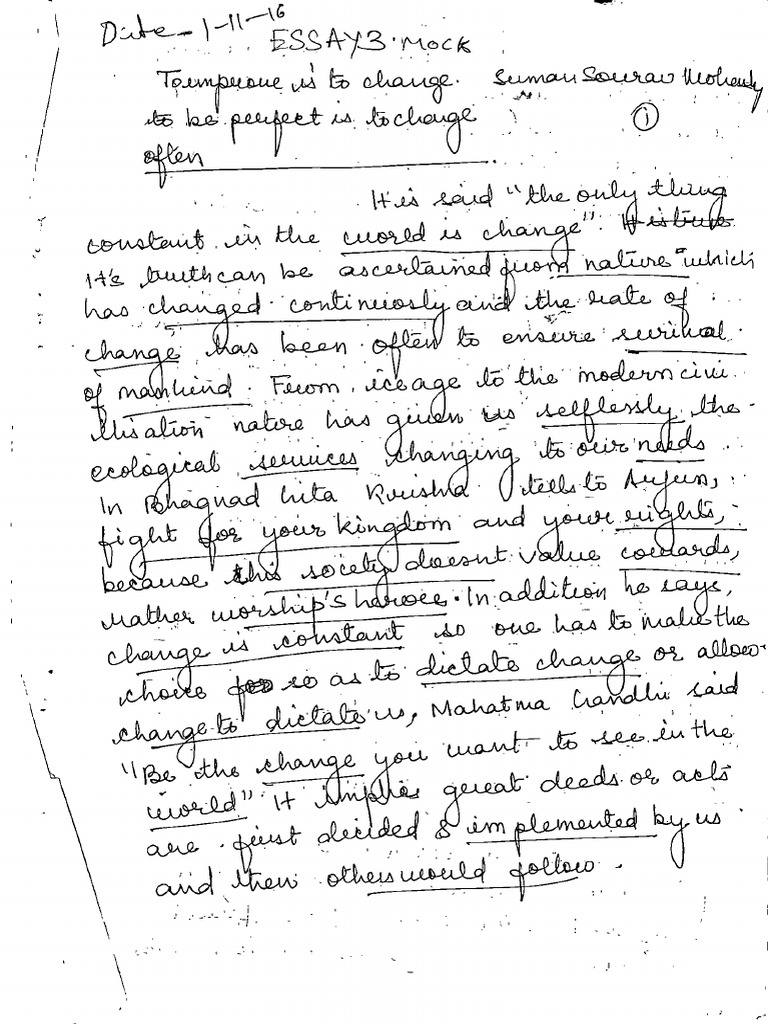 Date - 1-11-16
ESSAY 3. MOCK
To improve is to change. Suman Sourav Mohanty
to be perfect is to change
often
1
It is said "the only thing
constant in the world is change". It is true
It's truth can be ascertained from nature which
has changed continuosly and the rate of
change has been often to ensure survival
of mankind. From ice age to the modern civi
llisation nature has given us selflessly the
ecological services changing to our needs
In Bhagvad Gita Krishna tells to Arjun,
fight for your kingdom and your rights,
because this society doesnt value cowards,
rather worship's heroes. In addition he says,
change is constant so one has to make the
choice so as to dictate change or allow
change to dictate us, Mahatma Gandhi said
"Be the change you want to see in the
world" It implies great deeds or acts
are first decided & implemented by us
and then others would follow.